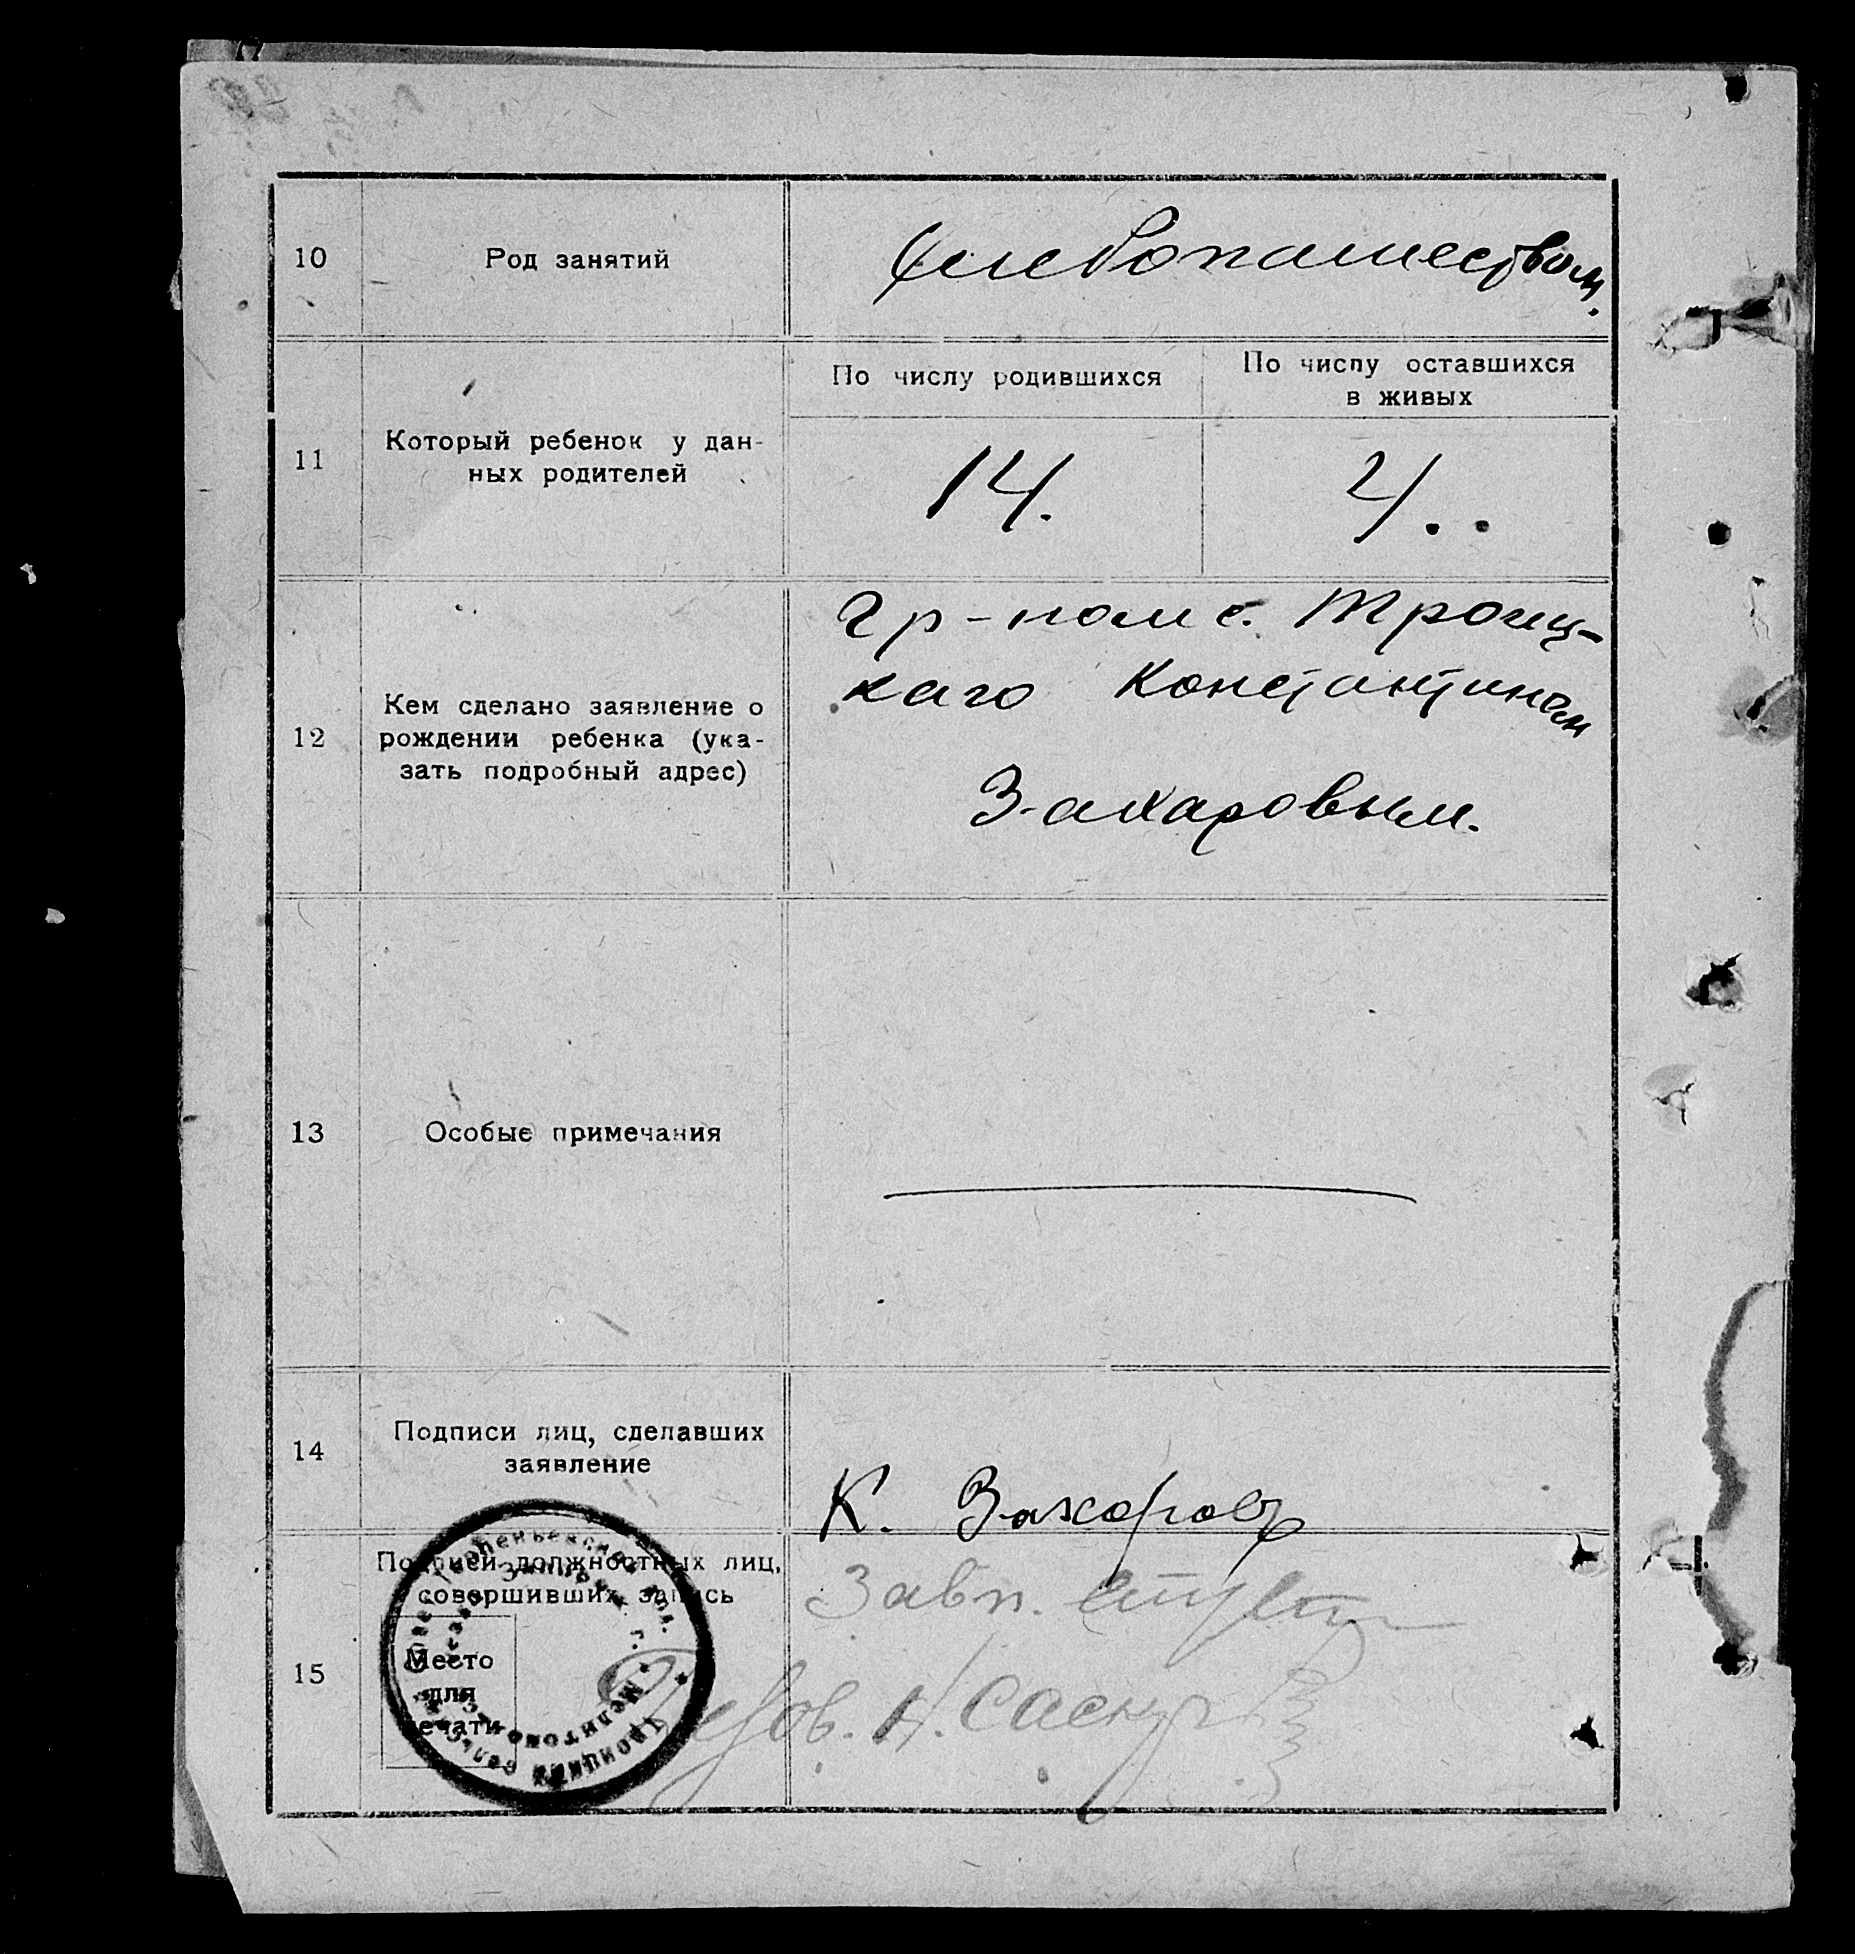 10
Род занятий
Хлебопашеством.
11
Который ребенок у дан-
ных родителей
По числу родившихся
По числу оставшихся
в живых
14.
4..
12
Кем сделано заявление о
рождении ребенка (ука-
зать подробный адрес)
Гр-ном с. Троиц-
каго Константином
Захаровым.
13
Особые примечания
14
Подписи лиц, сделавших
заявление
К. Захоров
15
Подписи должностных лиц,
совершивших запись
Место
для
печати
Завп.
Н.
Троицкий сельск
Мелитопольск